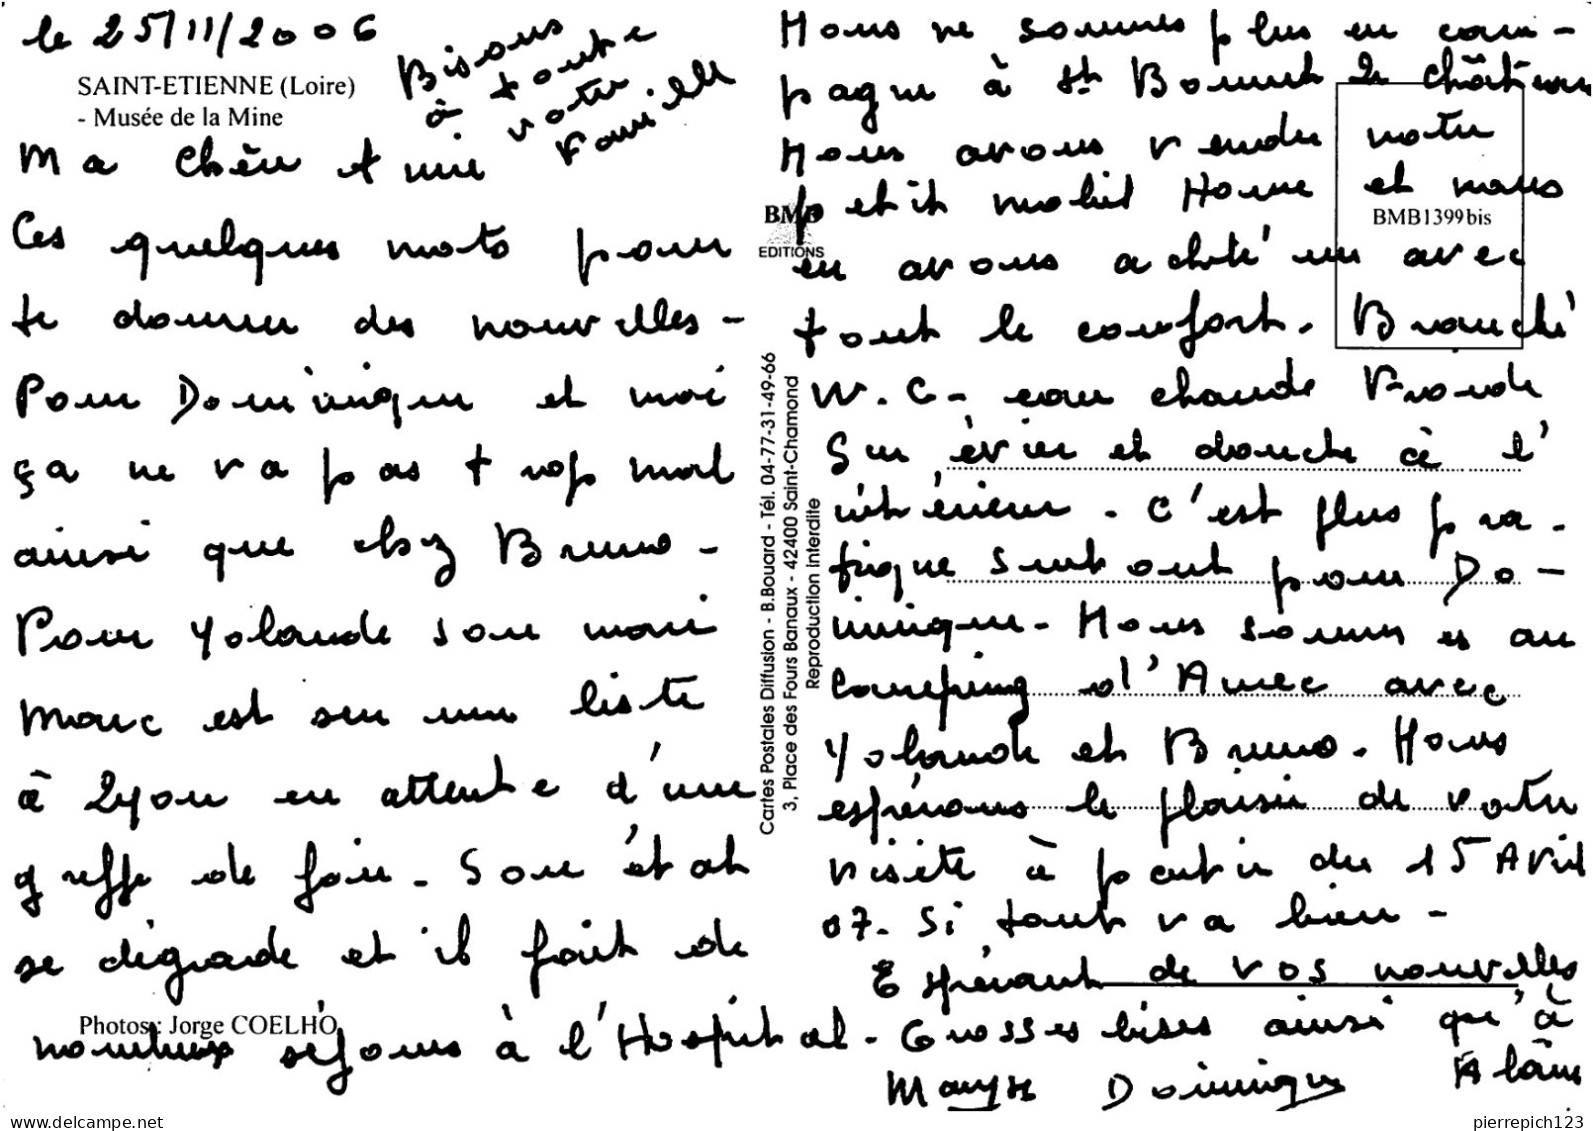 le 25/11/2006
Bisous
à toute
votre
Famille
SAINT-ETIENNE (Loire)
- Musée de la Mine
Ma Chère Amie
Ces quelques mots pour
te donner des nouvelles -
Pour Dominique et moi
ça ne va pas trop mal
ainsi que chez Bruno -
Pour Yolande son mari
Marc est sur une liste
à Lyon en attente d'une
greffe de foie - Son état
se dégrade et il fait de
nombreux séjours à l'Hospital -
Photos : Jorge COELHO
BMB
EDITIONS
Cartes Postales Diffusion - B.Bouard - Tél. 04-77-31-49-66
3, Place des Fours Banaux - 42400 Saint-Chamond
Reproduction interdite
BMB1399bis
Nous ne sommes plus en cam-
pagne à St Bonnet le château
Nous avons vendu notre
petit mobil Home et nous
en avons acheté un avec
tout le confort. Branché
W.C - eau chaude Froide
Sur évier et douche à l'
intérieur - C'est plus pra-
tique surtout pour Do-
minique - Nous sommes au
Camping d'Aurec avec
Yolande et Bruno - Nous
espérons le plaisir de votre
visite à partir du 15 Avril
07 - Si tout va bien -
Espérant de vos nouvelles
Grosses bises ainsi qu'à
Maryse Dominique Alain
delcampe.net
pierrepich123